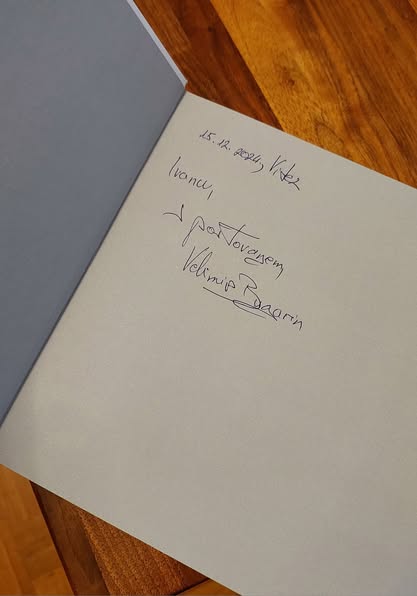 15.12.2024, Vitez
Ivanu,
s poštovanjem
Velimir Bugarin